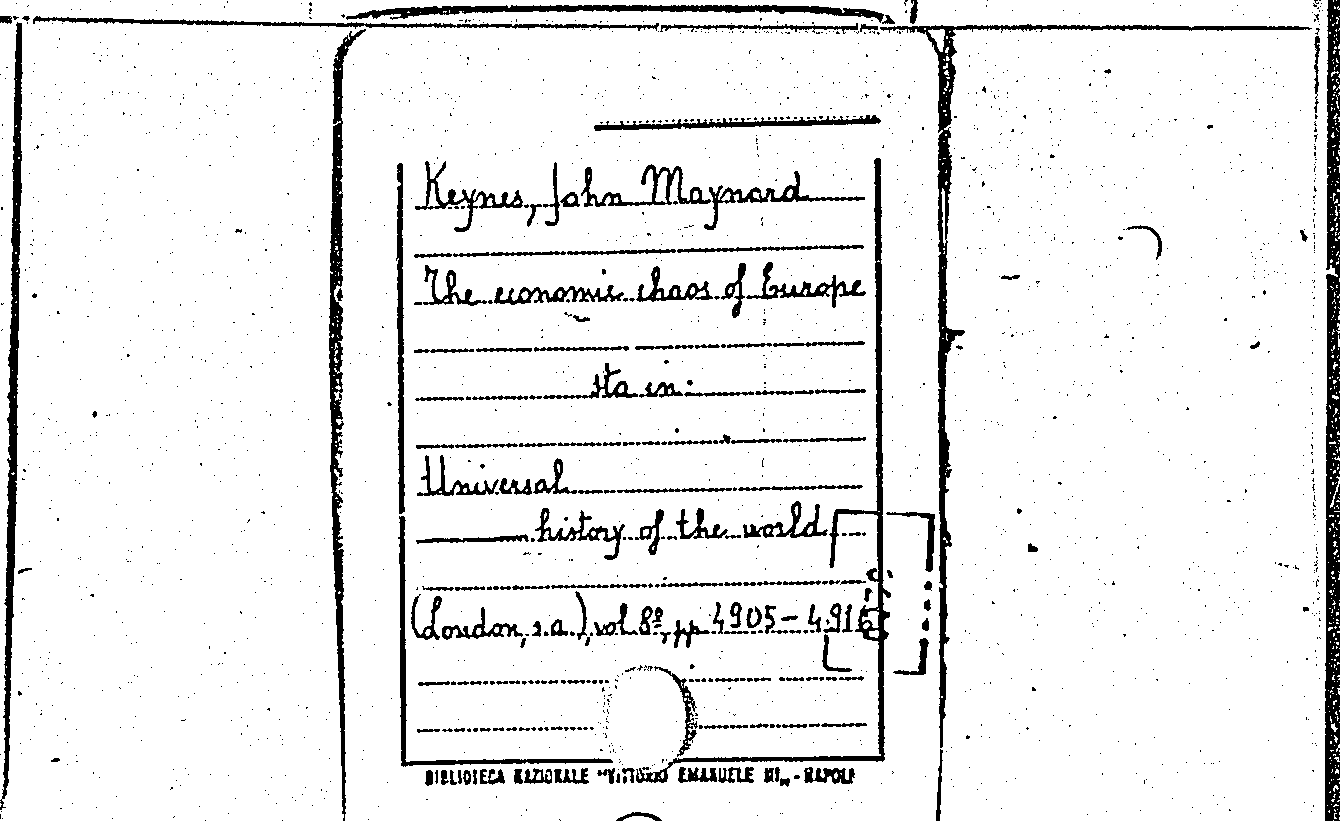 Keynes, John Maynard
The economic chaos of Europe
sta in:
Universal
history of the world
(London, s.a.), vol. 8º, pp. 4905 - 4916
BIBLIOTECA NAZIONALE "VITTORIO EMANUELE III" - NAPOLI